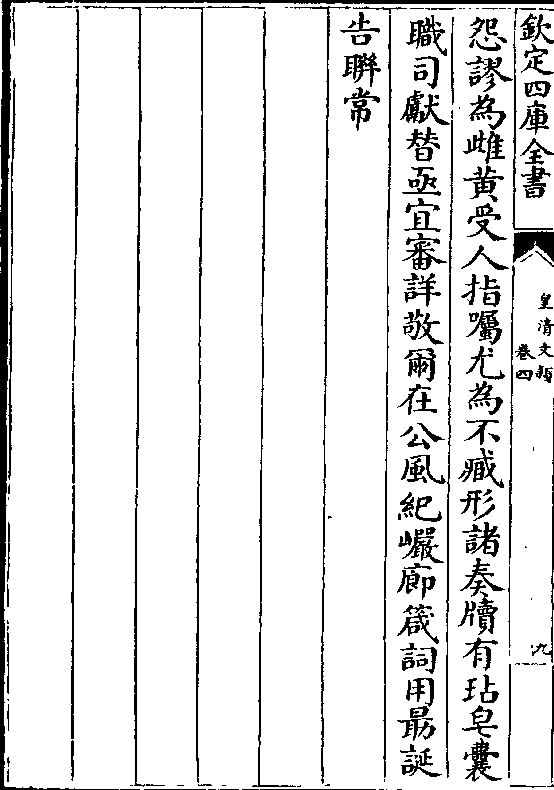 欽定四庫全書
皇清文類
卷四
九
怨謬為雌黄受人指嘱尤為不臧形諸奏牘有玷皂囊
職司獻替亟宜審詳敬爾在公風紀巖廊箴詞用朂誕
告聨常